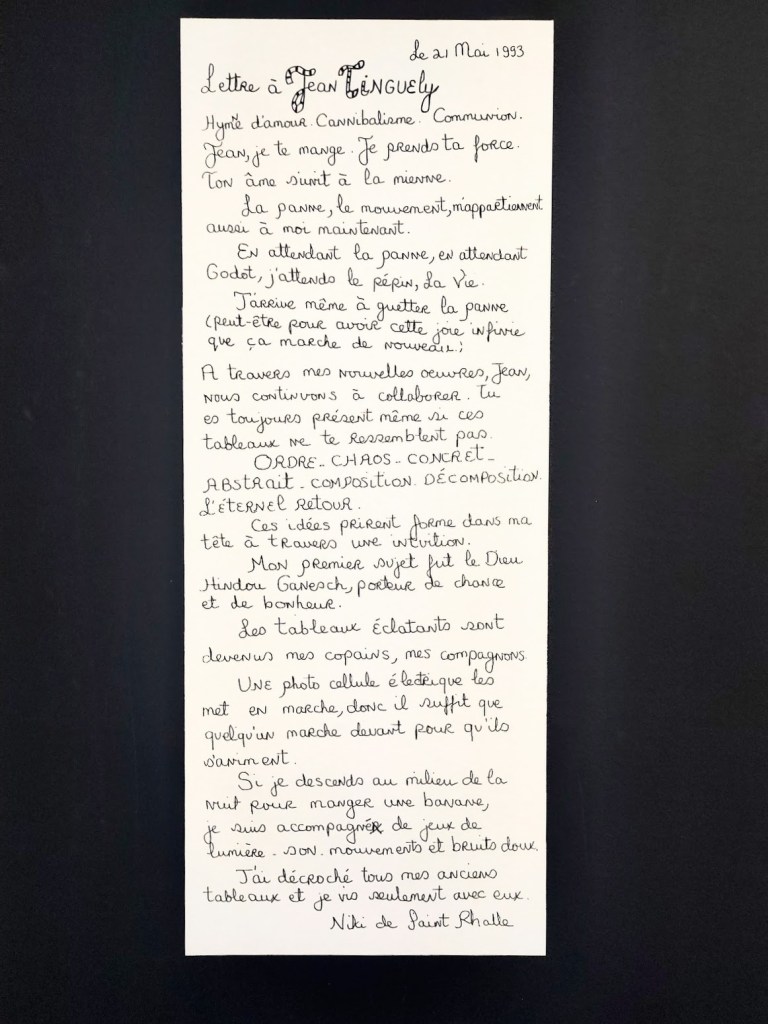 Le 21 Mai 1993
Lettre à Jean Tinguely
Hymne d'amour. Cannibalisme. Communion.
Jean, je te mange. Je prends ta force.
Ton âme s'unit à la mienne.
La panne, le mouvement, m'appartiennent
aussi à moi maintenant.
En attendant la panne, en attendant
Godot, j'attends le pépin, La Vie.
J'arrive même à guetter la panne
(peut-être pour avoir cette joie infinie
que ça marche de nouveau!)
A travers mes nouvelles oeuvres, Jean,
nous continuons à collaborer. Tu
es toujours présent même si ces
tableaux ne te ressemblent pas.
ORDRE - CHAOS - CONCRET -
ABSTRAIT - COMPOSITION. DÉCOMPOSITION.
L'ÉTERNEL RETOUR.
Ces idées prirent forme dans ma
tête à travers une intuition.
Mon premier sujet fut le Dieu
Hindou Ganesch, porteur de chance
et de bonheur.
Les tableaux éclatants sont
devenus mes copains, mes compagnons.
Une photo cellule électrique les
met en marche, donc il suffit que
quelqu'un marche devant pour qu'ils
s'animent.
Si je descends au milieu de la
nuit pour manger une banane,
je suis accompagnée de jeux de
lumière. son. mouvements et bruits doux.
J'ai décroché tous mes anciens
tableaux et je vis seulement avec eux.
Niki de Saint Phalle